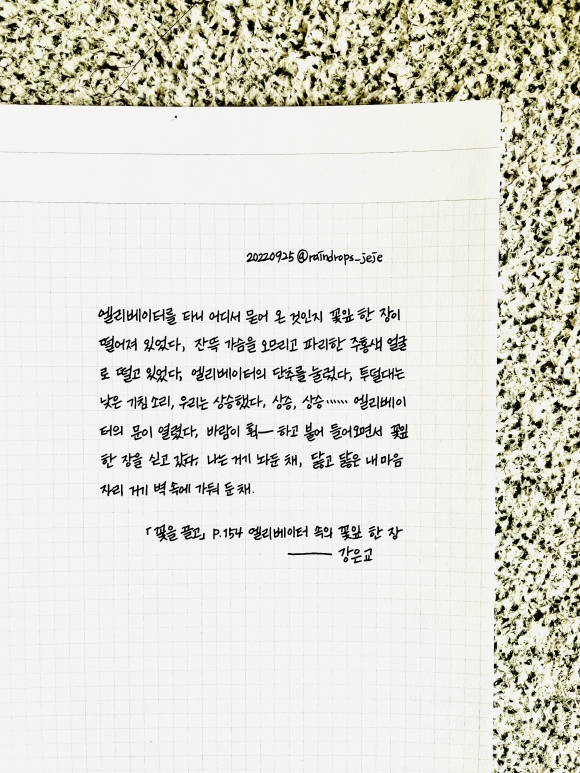 20220925 @raindrops_jeje
엘리베이터를 타니 어디서 묻어 온 것인지 꽃잎 한 장이
떨어져 있었다, 잔뜩 가슴을 오므리고 파리한 주홍색 얼굴
로 떨고 있었다, 엘리베이터의 단추를 눌렀다, 투덜대는
낮은 기침 소리, 우리는 상승했다, 상승, 상승…… 엘리베이
터의 문이 열렸다, 바람이 휘── 하고 불어 들어오면서 꽃잎
한 장을 싣고 갔다, 나는 거기 놔둔 채, 닳고 닳은 내 마음
자리 거기 벽 속에 가둬 둔 채.
「꽃을 끌고」 P.154 엘리베이터 속의 꽃잎 한 장
─── 강은교